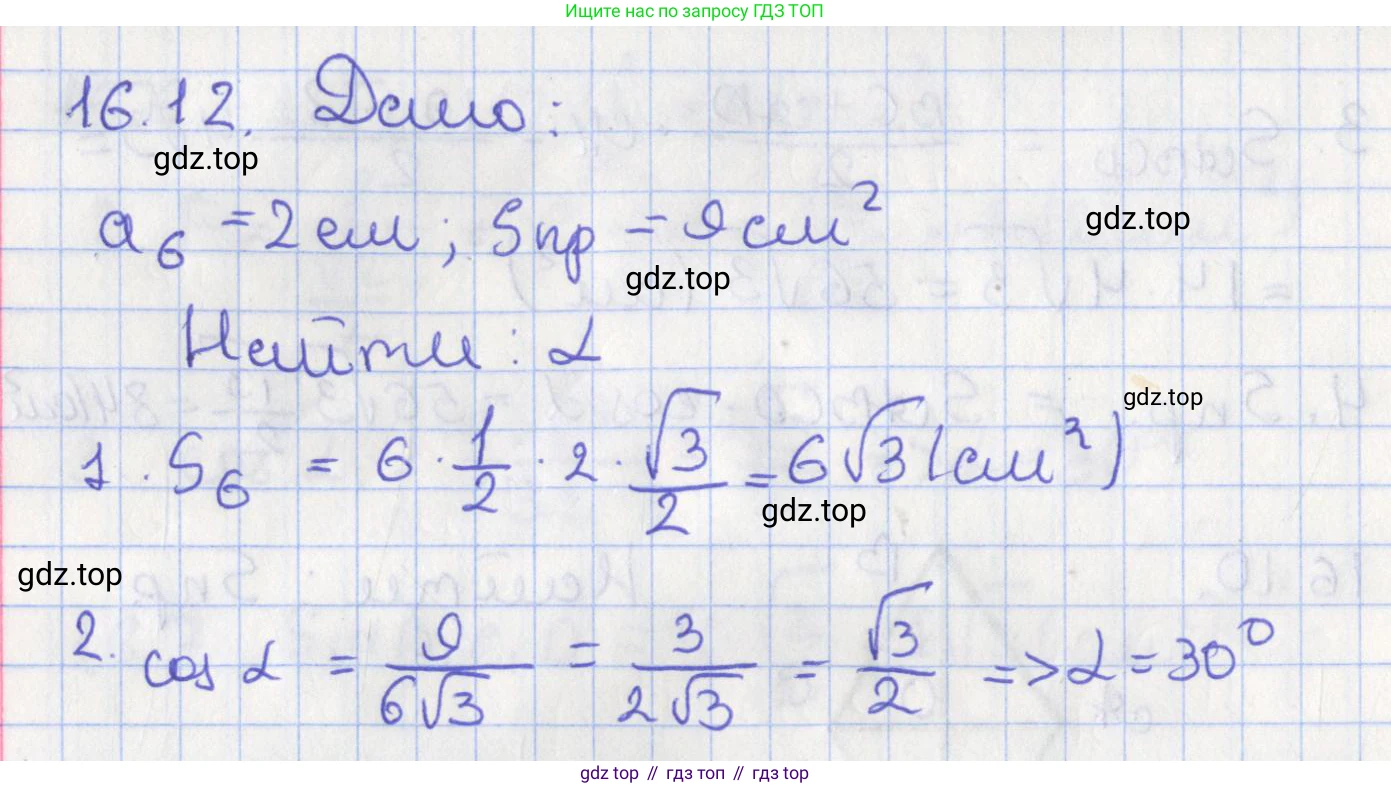 Ищите нас по запросу ГДЗ ТОП
16.12. Дано:
gdz.top
a₆ = 2 см ; Sпр = 9 см²
gdz.top
gdz.top
Найти : α
gdz.top
1. S₆ = 6 · 1/2 · 2 · √3/2 = 6√3 (см²)
gdz.top
gdz.top
2. cos α = 9/6√3 = 3/2√3 = √3/2 => α = 30⁰
gdz top // гдз топ // гдз top